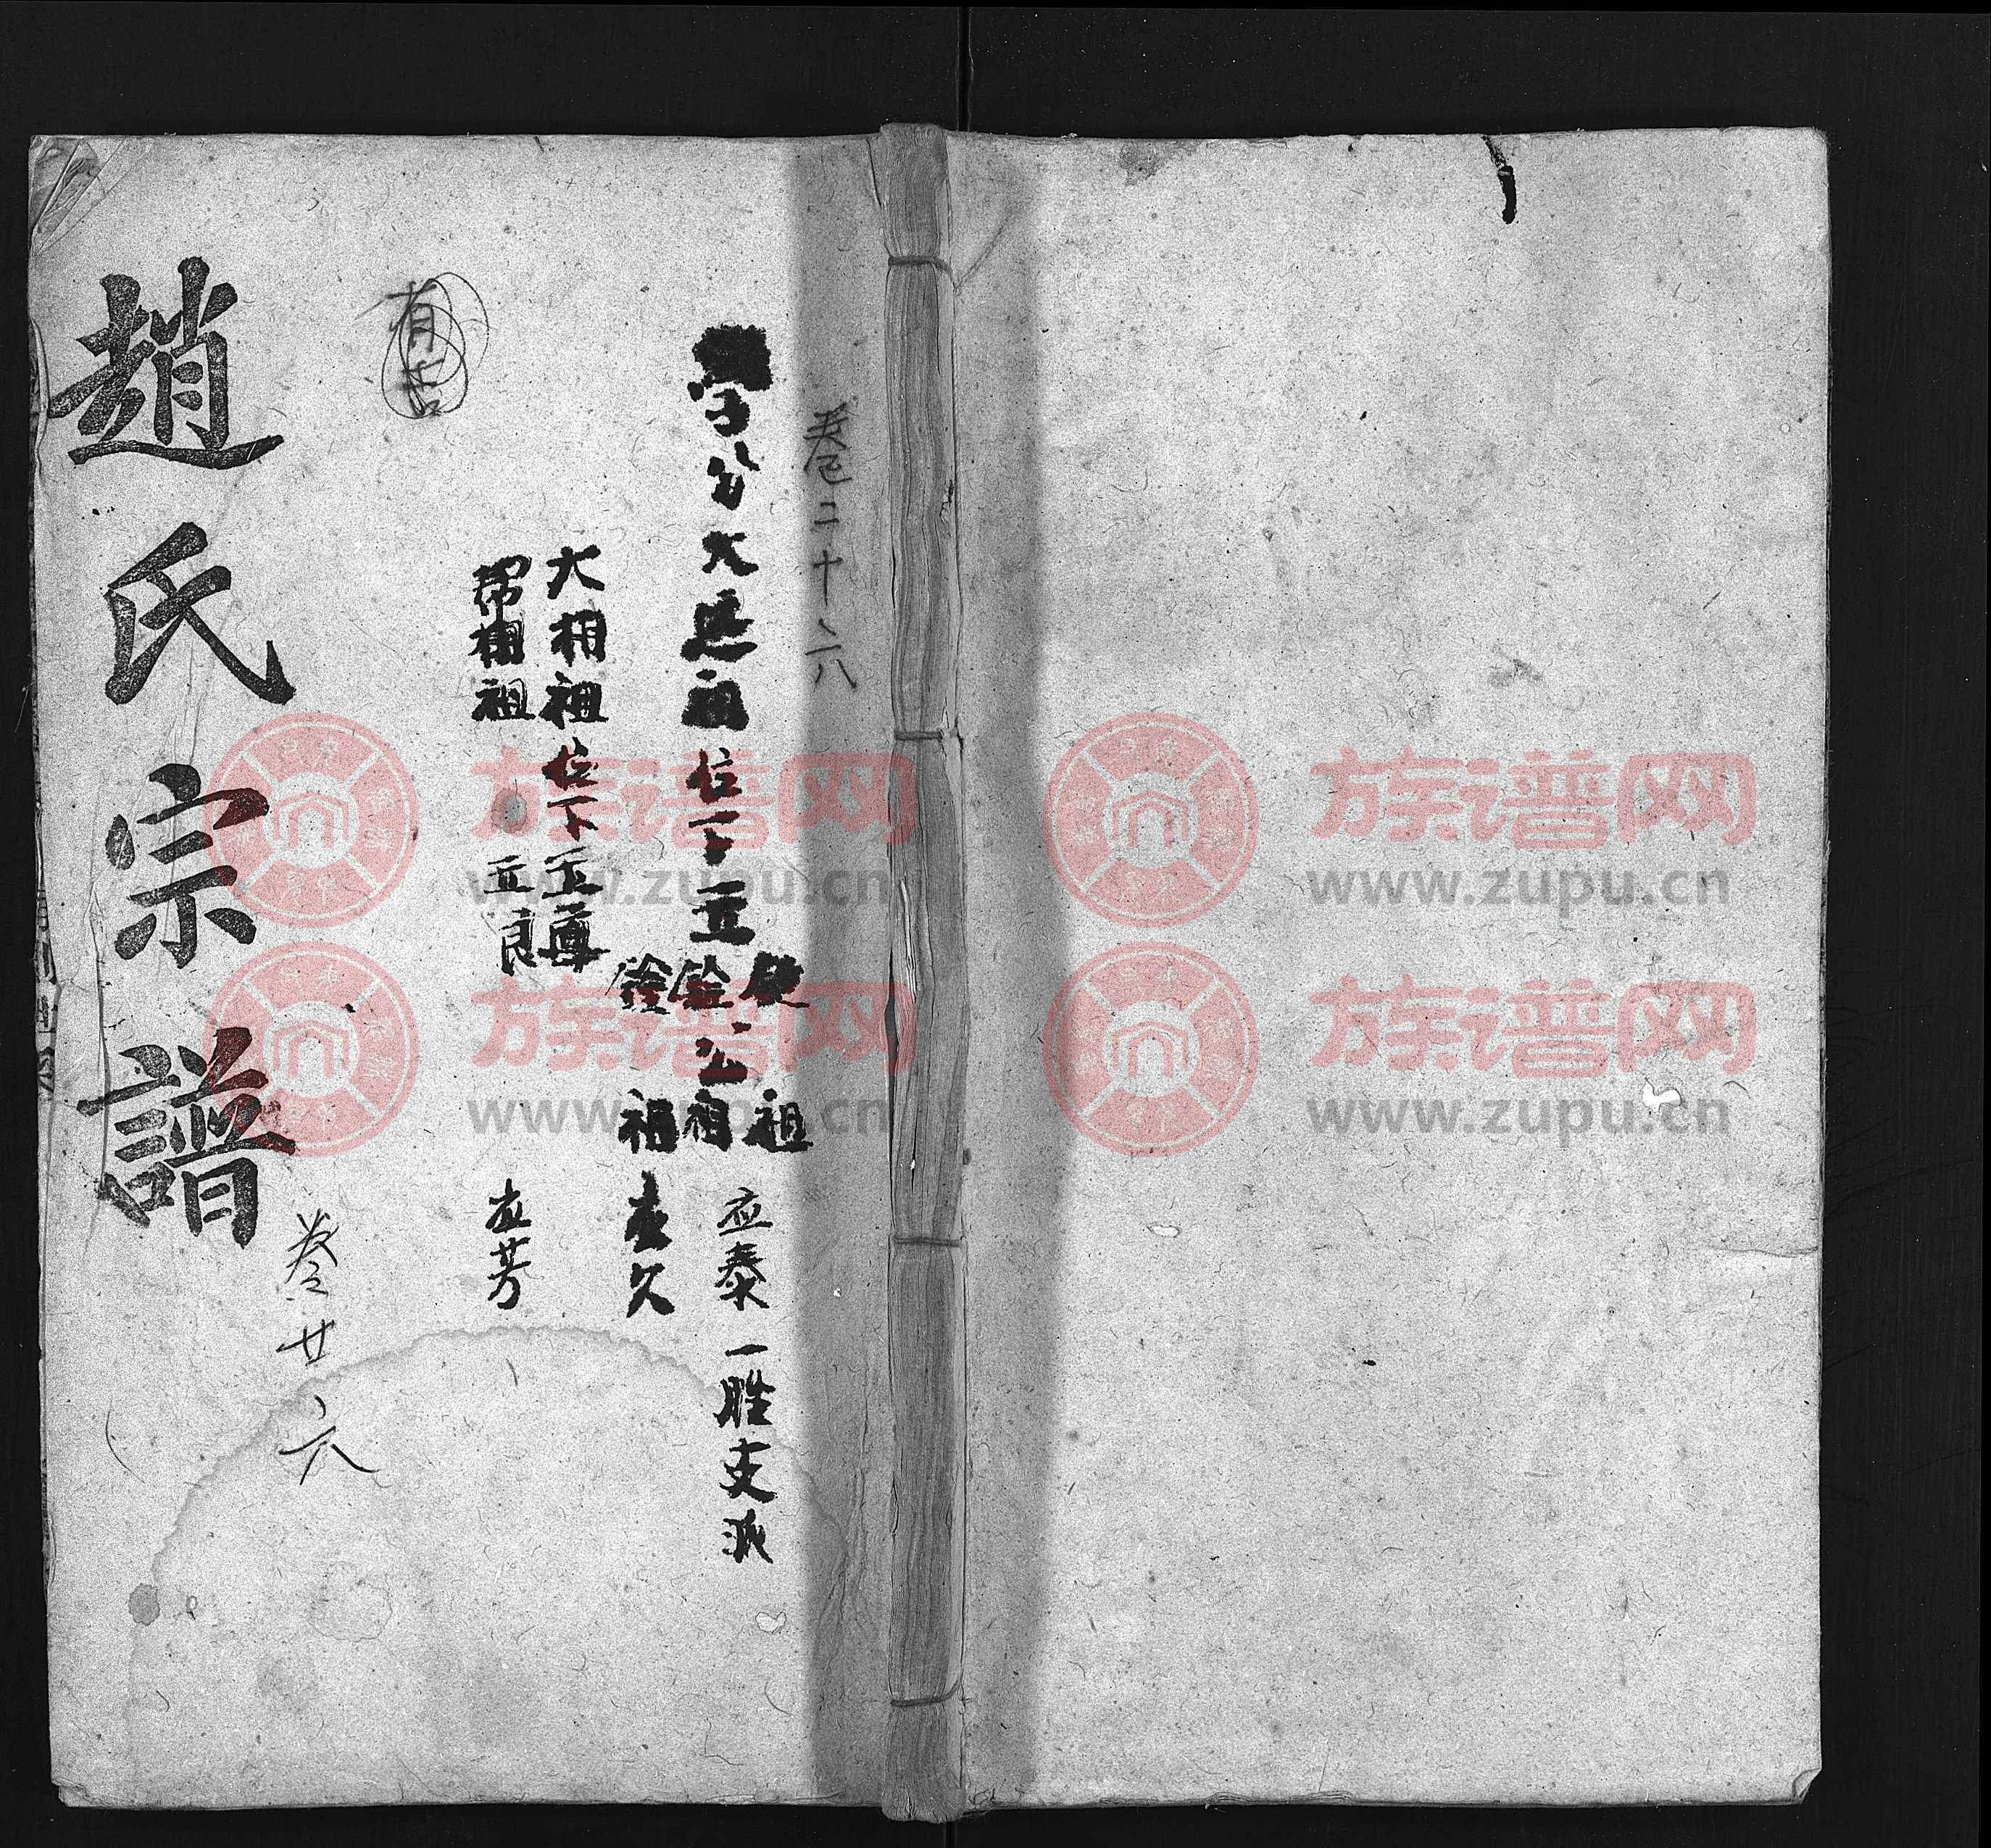 卷二十六
公大 祖位下立
祖
公祖
祖
应泰一胜支派
应久
大相祖位下玉尊
帮相祖 立良
应芳
有吉
卷廿六
趙氏宗譜
族谱网
www.zupu.cn
族谱网
www.zupu.cn
族谱网
www.zupu.cn
族谱网
www.zupu.cn